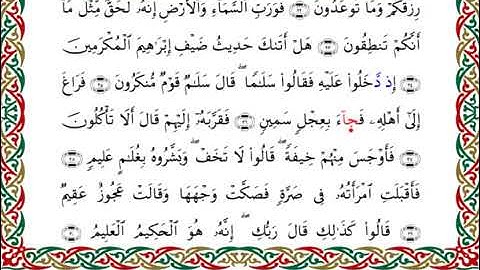 رِزْقُكُمْ وَمَا تُوعَدُونَ ٢٢ فَوَرَبِّ ٱلسَّمَآءِ وَٱلْأَرْضِ إِنَّهُۥ لَحَقٌّ مِّثْلَ مَآ
أَنَّكُمْ تَنطِقُونَ ٢٣ هَلْ أَتَىٰكَ حَدِيثُ ضَيْفِ إِبْرَٰهِيمَ ٱلْمُكْرَمِينَ
٢٤ إِذْ دَخَلُوا۟ عَلَيْهِ فَقَالُوا۟ سَلَٰمًا ۖ قَالَ سَلَٰمٌ قَوْمٌ مُّنكَرُونَ ٢٥ فَرَاغَ
إِلَىٰٓ أَهْلِهِۦ فَجَآءَ بِعِجْلٍ سَمِينٍ ٢٦ فَقَرَّبَهُۥٓ إِلَيْهِمْ قَالَ أَلَا تَأْكُلُونَ
٢٧ فَأَوْجَسَ مِنْهُمْ خِيفَةً ۖ قَالُوا۟ لَا تَخَفْ ۖ وَبَشَّرُوهُ بِغُلَٰمٍ عَلِيمٍ ٢٨
فَأَقْبَلَتِ ٱمْرَأَتُهُۥ فِى صَرَّةٍ فَصَكَّتْ وَجْهَهَا وَقَالَتْ عَجُوزٌ عَقِيمٌ
٢٩ قَالُوا۟ كَذَٰلِكِ قَالَ رَبُّكِ ۖ إِنَّهُۥ هُوَ ٱلْحَكِيمُ ٱلْعَلِيمُ ٣٠